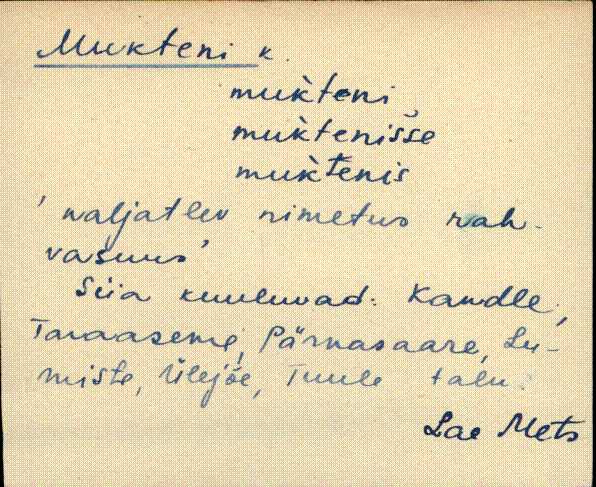 Mukteni k.
muk̀teni
muk̀tenisse
muk̀tenis
'naljatlev nimetus rah-
vasuus'
Siia kuuluvad: Kandle,
Taraaseme, Pärnasaare, Lu-
miste, Ülejõe, Tuule talu.
Lae Mets